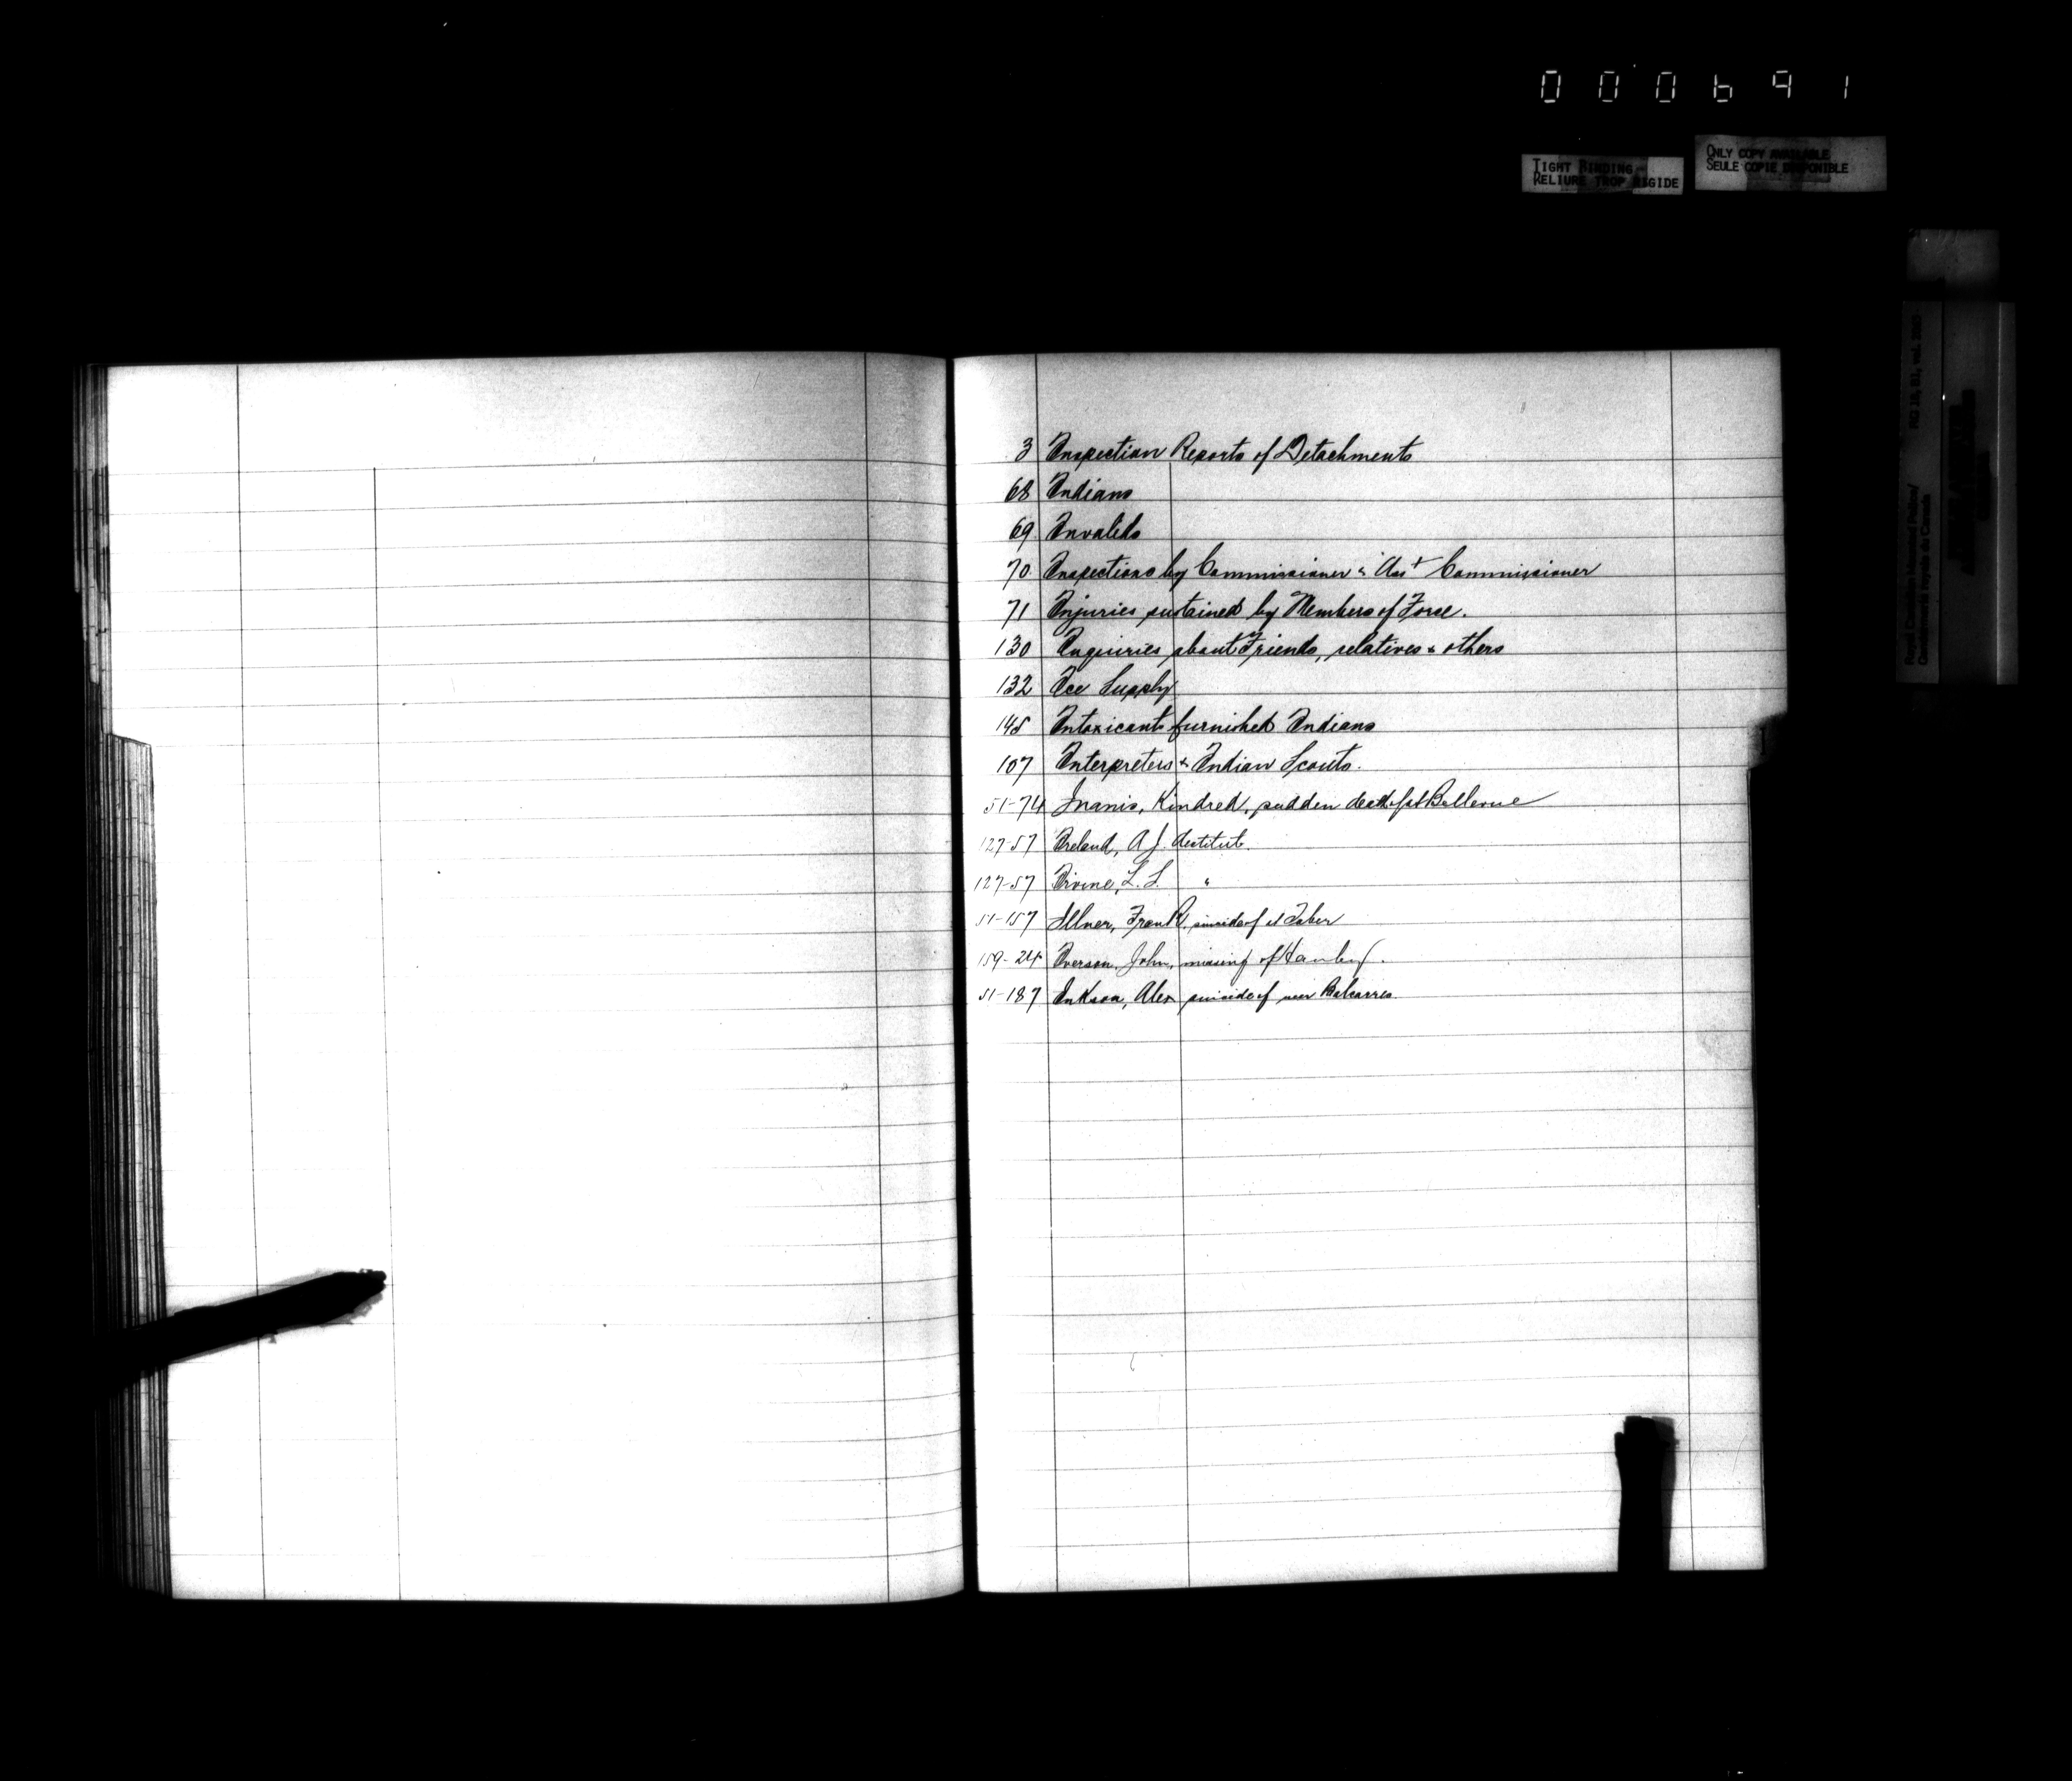 000691
TIGHT BINDING
RELIURE TROP RIGIDE
ONLY COPY AVAILABLE
SEULE COPIE DISPONIBLE
3 Inspection Reports of Detachments
68 Indians
69 Invalids
70 Inspections by Commissioner & Asst Commissioner
71 Injuries sustained by Members of Force.
130 Inquiries about Friends, relatives & others
132 Ice Supply
145 Intoxicants furnished Indians
107 Interpreters & Indian Scouts.
51-74 Inanis, Kindred, sudden death of at Bellevue
127-57 Ireland, A J. destitute.
127-57 Irvine, L. L. "
51-157 Illner, Frank, suicide of at Taber
159-24 Iverson, John, missing of
51-187 Inkson, Alex suicide of near Balcarres.
I
Royal Canadian Mounted Police/
Gendarmerie royale du Canada
RG 18, B1, vol.